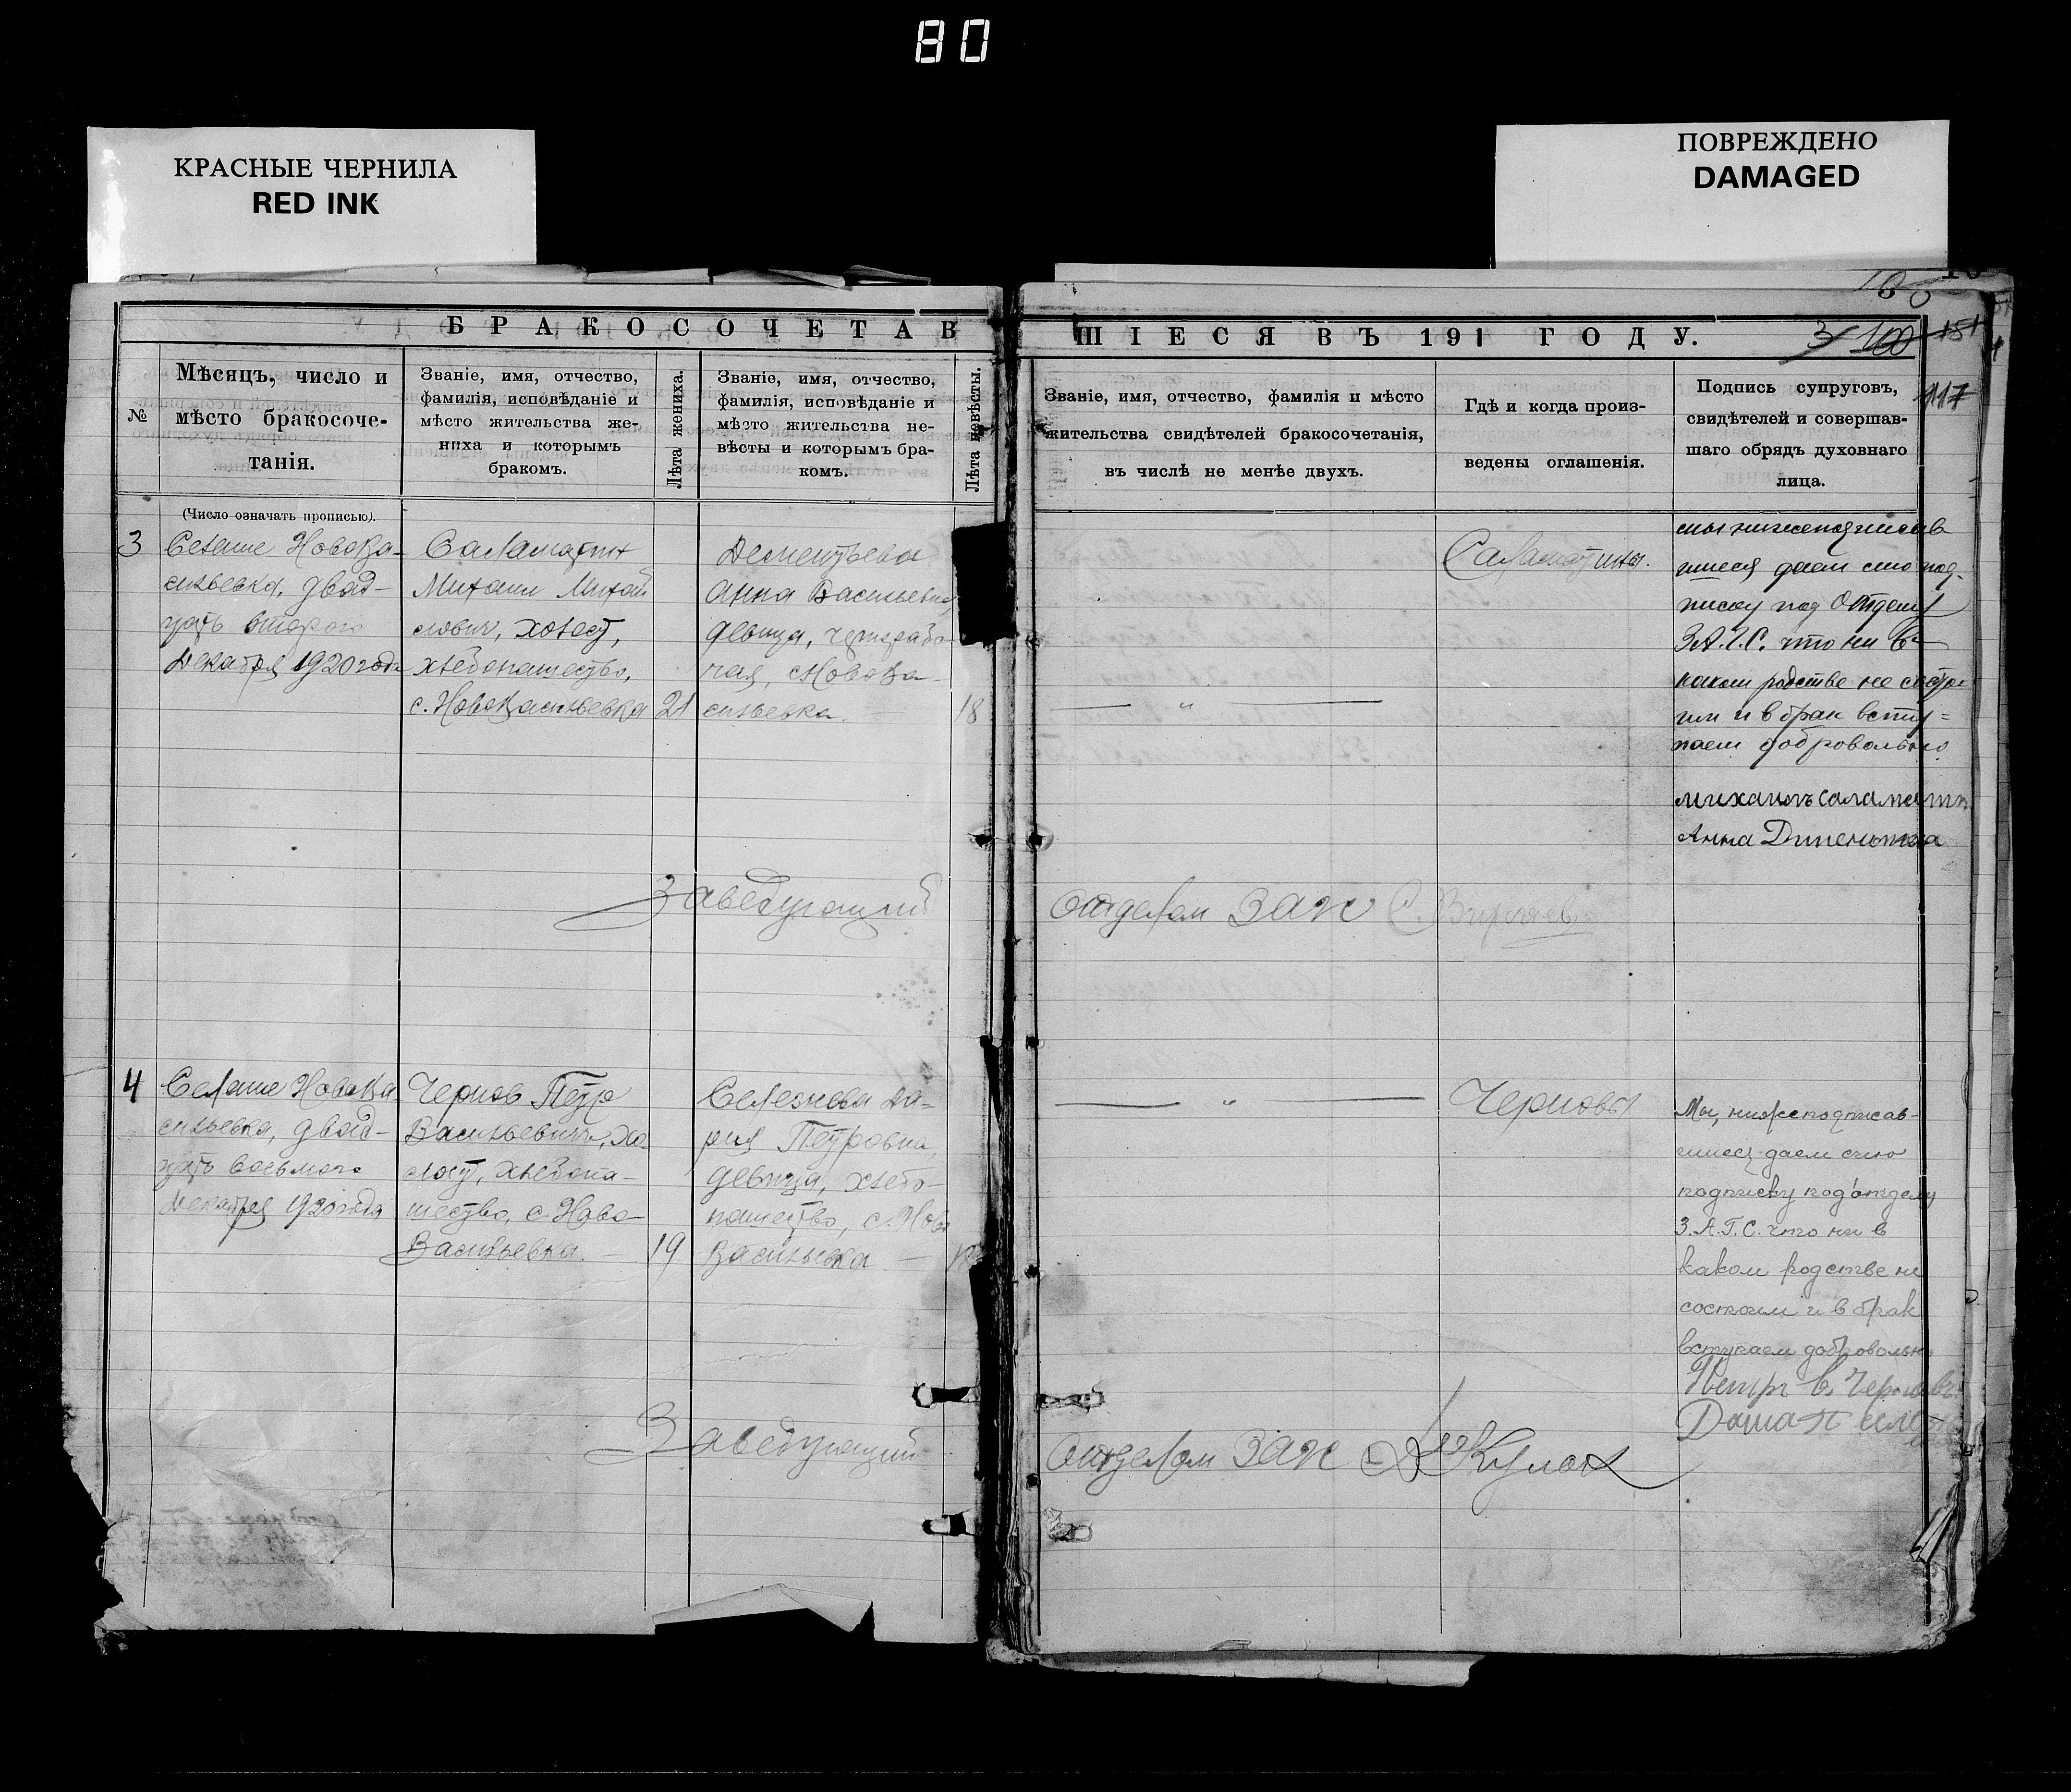 80
КРАСНЫЕ ЧЕРНИЛА
RED INK
ПОВРЕЖДЕНО
DAMAGED
БРАКОСОЧЕТАВ
ШІЕСЯ ВЪ 191 ГОДУ.
3 100 151
117
№
Мѣсяцъ, число и
мѣсто бракосоче-
танія.
Званіе, имя, отчество,
фамилія, исповѣданіе и
мѣсто жительства же-
ниха и которымъ
бракомъ.
Лѣта жениха.
Званіе, имя, отчество,
фамилія, исповѣданіе и
мѣсто жительства не-
вѣсты и которымъ бра-
комъ.
Лѣта невѣсты.
Званіе, имя, отчество, фамилія и мѣсто
жительства свидѣтелей бракосочетанія,
въ числѣ не менѣе двухъ.
Гдѣ и когда произ-
ведены оглашенія.
Подпись супруговъ,
свидѣтелей и совершав-
шаго обрядъ духовнаго
лица.
(Число означать прописью).
3
Селение Новова-
сильевка, двад-
цать второго
декабря 1920 года
Саламатин
Михаил Михай
лович, холост,
хлебопашество,
с. Нововасильевка
21
Дементьева
Анна Васильевна,
девица, чернорабо-
чая, с Новова-
сильевка.
18
— " —
Саламатины.
мы нижеподписав
шиеся даем сию под-
писку под Отделу
З.А.Г.С. что ни в
каком родстве не состо-
им и в брак всту=
паем добровольно
михаилъ саламатин
Анна
Заведующий
отделом ЗАН
4
Селение Новова
сильевка, двад-
цать восьмого
декабря 1920 года
Чернов Петр
Васильевич, хо
лост, хлебопа-
шество, с. Ново-
Васильевка. —
19
Селезнева Да=
рия Петровна,
девица, хлебо-
пашество, с. Ново
Васильевка —
— " —
Черновы
Мы, нижеподписав-
шиеся даем сию
подписку под'отделу
З.А.Г.С. что ни в
каком родстве не
состоим и в брак
вступаем добровольно
Петр В. Черновъ
Даша П
Заведующий
отделом ЗАН